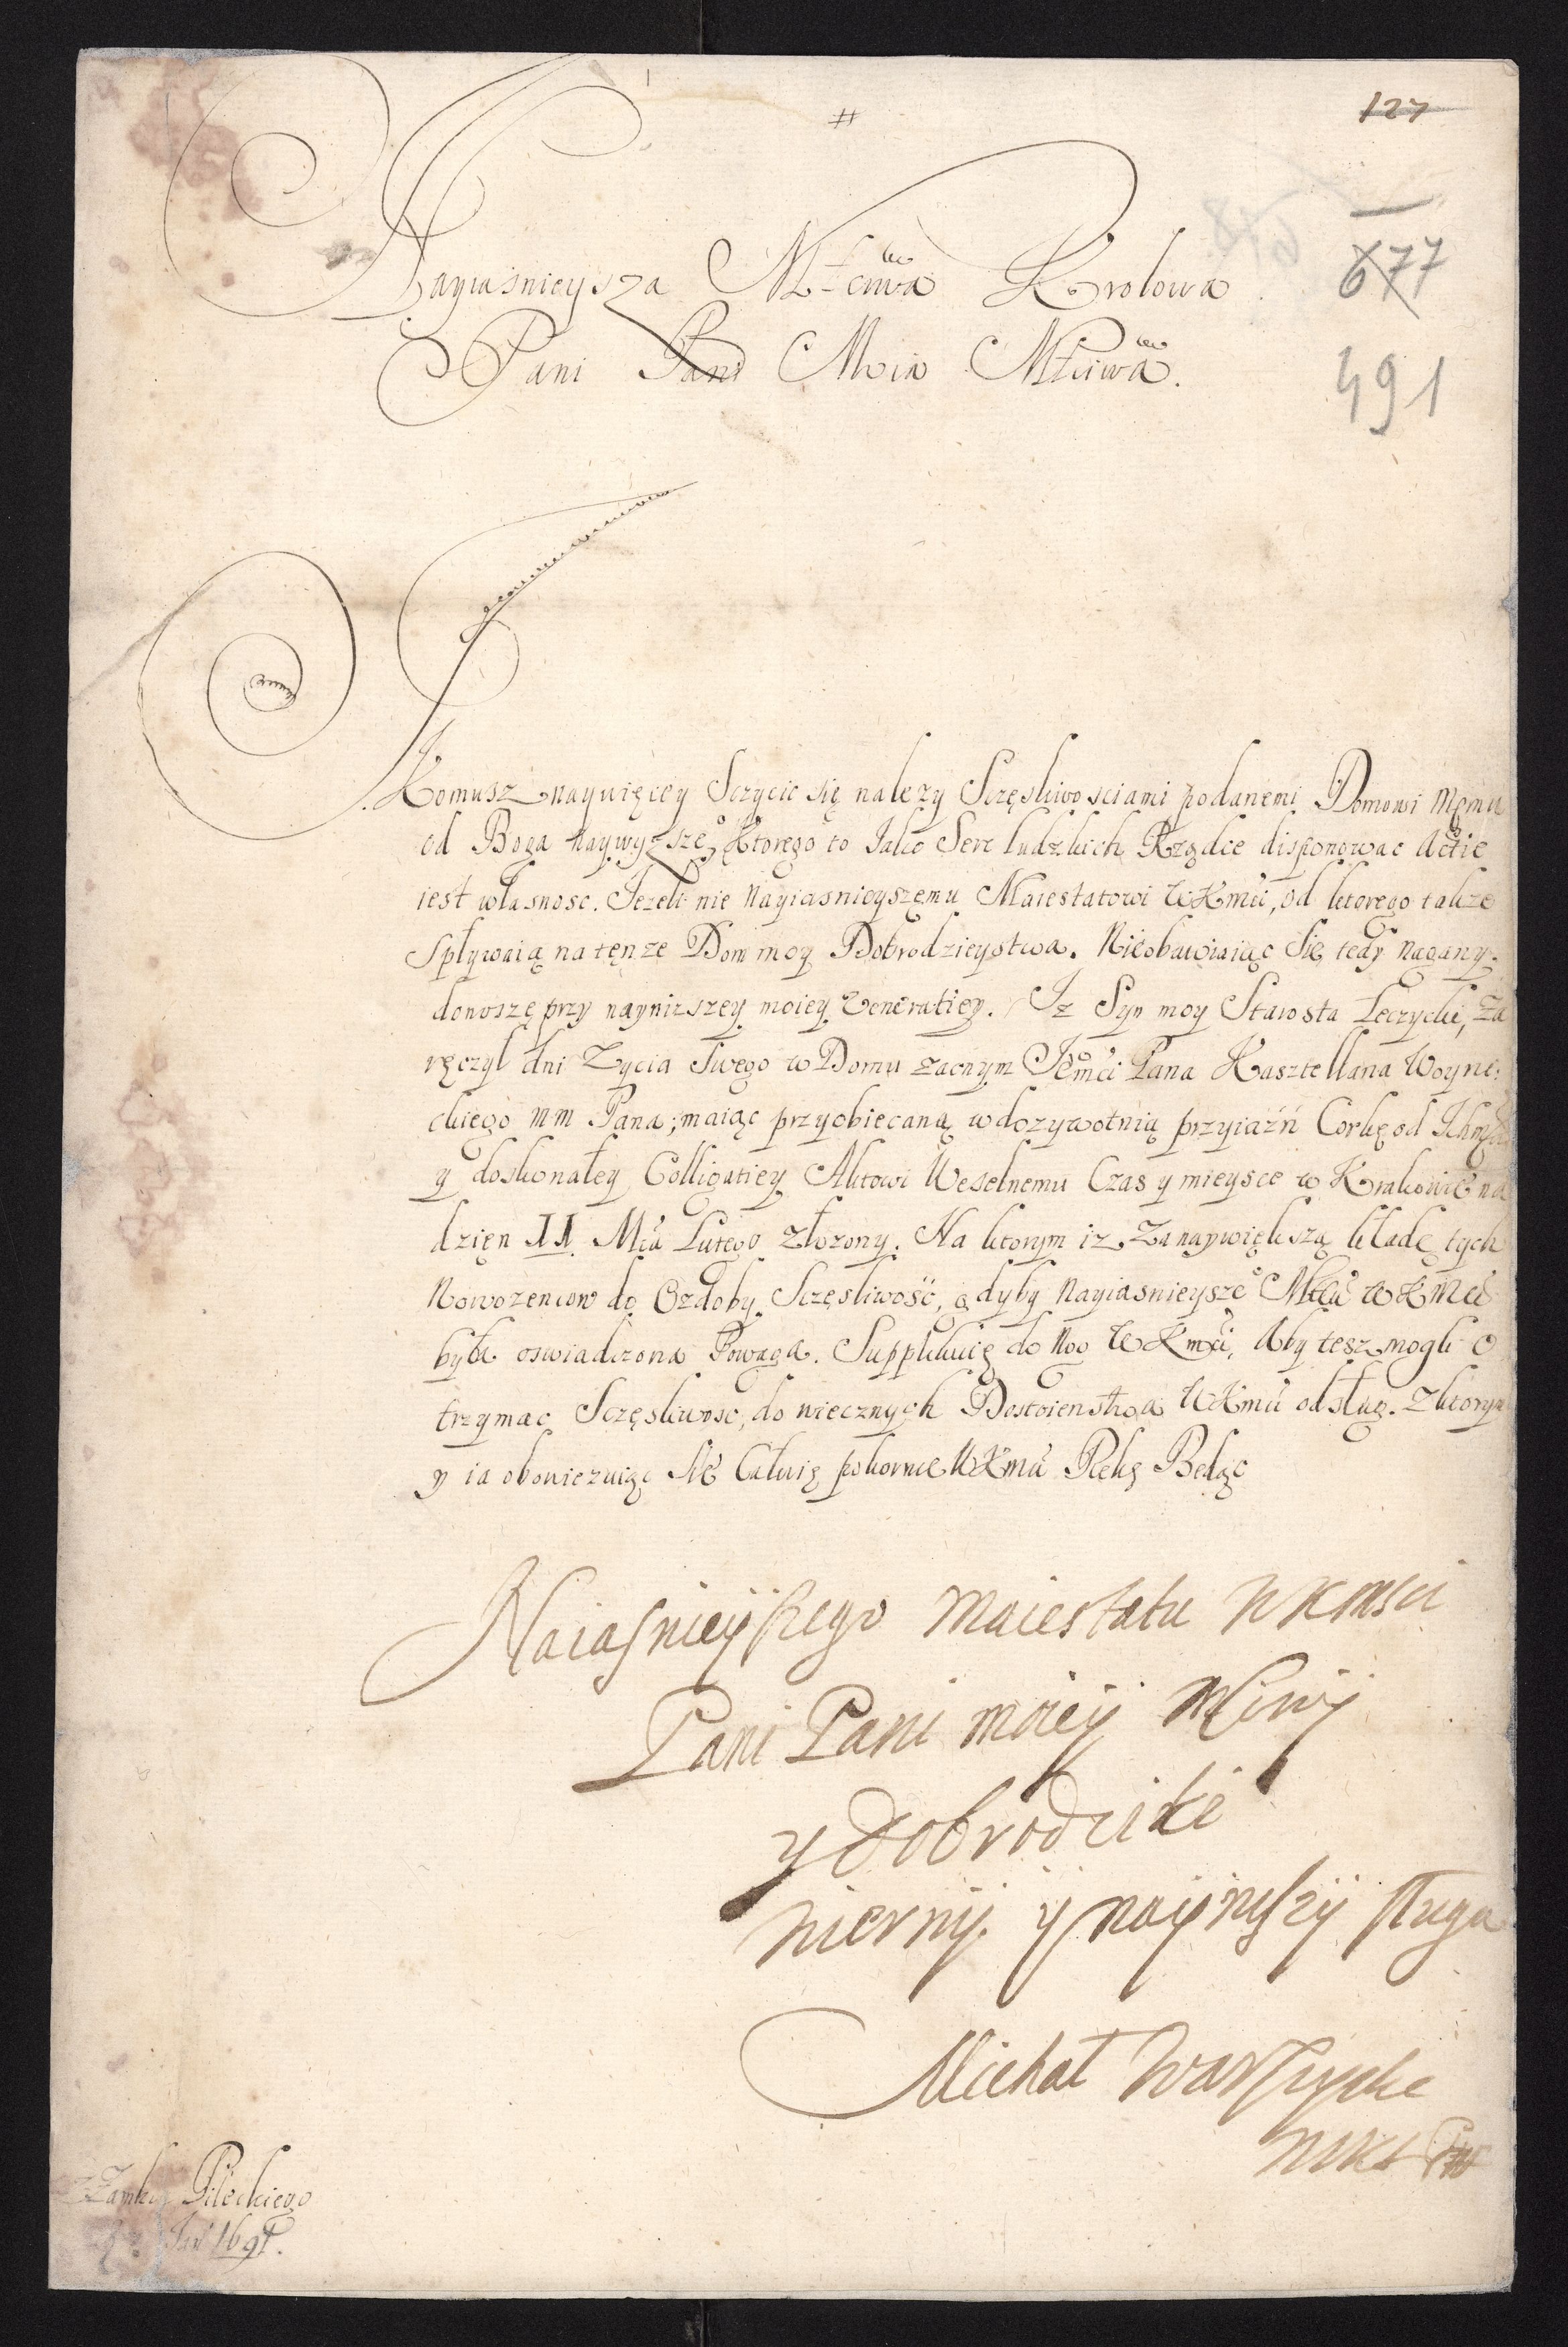 #
127
677
491
Nayiasnieysza Młćiwa Krolowa
Pani Pani Moia Młćiwa.
Komusz naywięcey Sczycić się nalezy Sczęsliwosciami podanemi Domowi Memu
od Boga naywyższe, Ktorego to Jako Serc ludzkich Rządce disponowac Actie
iest własnosc. Jezeli nie Nayiasnieyszemu Maiestatowi WKMci, od ktorego takze
Spływaią na tęnze Dom moy Dobrodzieystwa. Nieobawiaiąc Się tedy Nagany
donoszę przy naynizszey moiey Veneratiey. Iz Syn moy Starosta Łęczycki, za
ręczył dni Zycia Swego w Domu zacnym Jemci Pana Kasztellana Woyni:
ckiego mm Pana; maiąc przyobiecaną w dozywotnią przyiaźń Corkę od Ichm
y doskonałey Colligatiey Aktowi Weselnemu Czas y mieysce w Krakowie na
dzięn 11 Mca Lutego złozony. Na ktorym iz za naywiększą kładę tych
Nowozencow do Ozdoby Sczęsliwość, gdyby Nayiasnieysze Młći WKMci
była oswiadczona Powaga. Supplikuię do Nog WKmci, Aby tesz mogli o
trzymac Sczęsliwosc, do wiecznych Dostoienstwa WKmci odsług. Z ktorym
y ia obowiezuiąc Się Całuię pokornie WKmci Rękę Będąc
Naiasnieyszego Maiestatu WKMsci
Pani Pani moiey Mciwy
y Dobrodziki
wierny y naynyszy sługa
Michał Warszycki
z Zamku Pileckiego
Jan 1691.